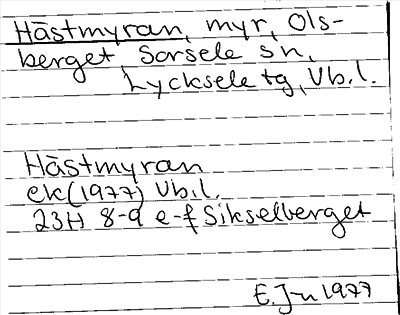 Hästmyran, myr, Ols-
berget, Sorsele sn,
Lycksele tg, Vb.l.
Hästmyran
ek (1977) Vb.l.
23H 8-9 e-f Sikselberget
E. J-n 1977